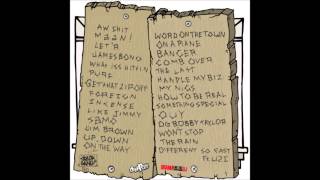 AW SHIT
MAAN!
LET'R
JAMES BOND
WHAT ISS HITTIN
PURE
GET WHAT I RIPOFF
FOREIGN
INCENSE
LIKE JIMMY
SAMO
JIM BROWN
UP, DOWN
ON THE WAY
WORD ON THE TOWN
ON A PLANE
BANGER
COMB OVER
THE LAST
HANDLE MY BIZ
MY NIGS
HOW TO BE REAL
SOMETHING SPECIAL
OUIY
OG BOBBY TAYLOR
WONT STOP
THE RAIN
DIFFERENT SO FAST
FT. LIZI